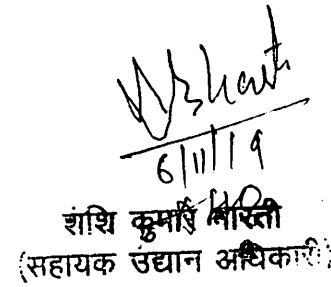 6/11/19
शशि कुमार भारती
(सहायक उद्यान अधिकारी)